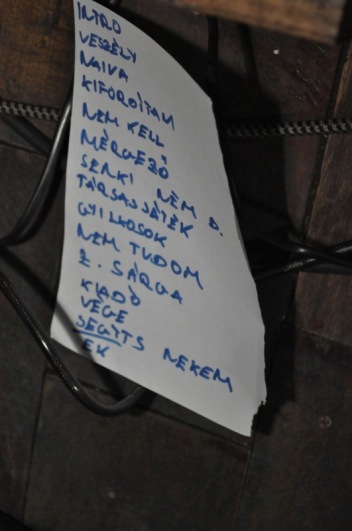 INTRO
VESZÉLY
NAIVA
KIFORDÍTAM
NEM KELL
MÉRGEZŐ
SENKI NEM D.
TÁRSASJÁTÉK
GYILKOSOK
NEM TUDOM
Z. SÁRGA
KIADÓ
VÉGE
SEGÍTS NEKEM
ÉK